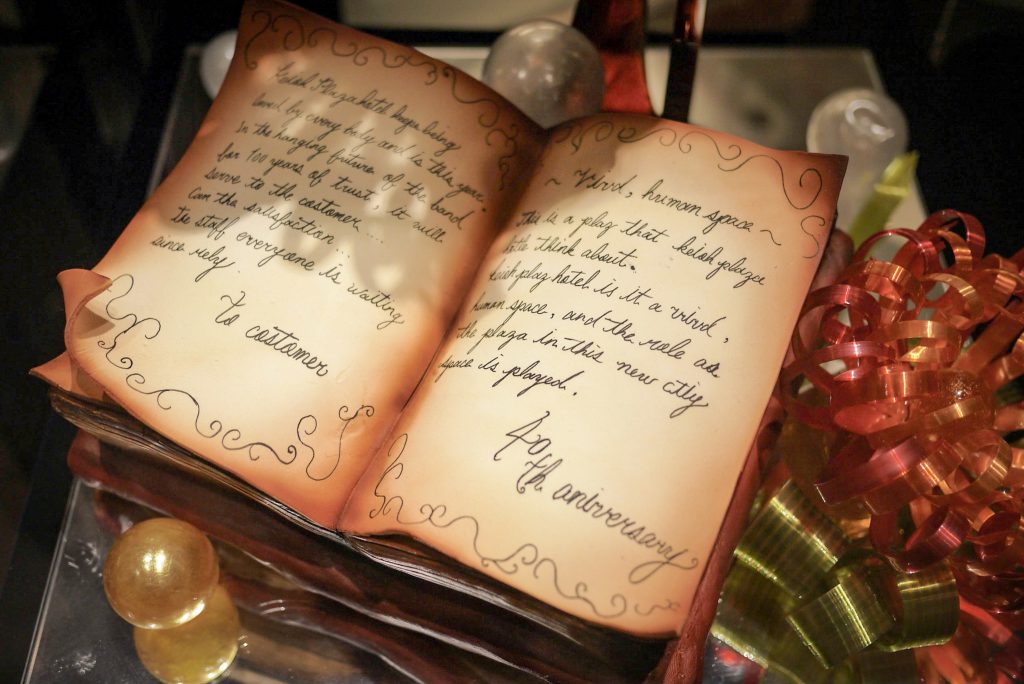 Keioh Plaza hotel keeps being
loved by every body and is this year.
In the hanging future of the band
for 100 years of trust, it will
serve to the castomer....
Can the satisfaction...
the staff everyone is waiting
since rely.
To castomer
~ Vivid, human space ~
this is a play that keioh plaza
hotel think about.
keioh plaz hotel is it a vivid,
human space, and the role as
the plaza in this new ctiy
space is played.
40
th aniversary